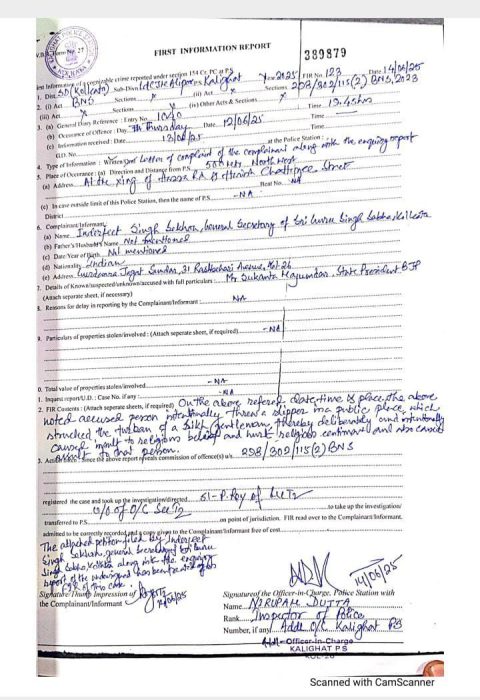 V.B. Form No. 27
FIRST INFORMATION REPORT
389879
First Information of cognizable crime reported under section 154 Cr. PC at P.S.
1. Dist. SD (Kolkata) Sub-Divn Ld CJM Alipore P.S. Kalighat Year 2025 FIR No. 123 Date 14/06/25
2. (i) Act BNS Sections × (ii) Act × Sections 298/302/115(2) BNS, 2023
(iii) Act × Sections × (iv) Other Acts & Sections ×
3. (a) General Diary Reference : Entry No. 1040 Time 12.45 hrs
(b) Occurrence of Offence : Day Thursday Date 12/06/25 Time
(c) Information received : Date 13/06/25 at the Police Station : Time
G.D. No.
4. Type of Information : Written letter of complaint of the complainant along with the enquiry report
5. Place of Occurrence : (a) Direction and Distance from P.S. 500 Mts North West
(a) Address At the xing of Hazra Rd & Harish Chatterjee Street
Beat No. NA
(c) In case outside limit of this Police Station, then the name of P.S. - NA
District
6. Complainant/Informant :
(a) Name Inderjeet Singh Sekhon, General Secretary of Sri Guru Singh Sabha, Kolkata
(b) Father's/Husband's Name Not mentioned
(c) Date/Year of Birth Not mentioned
(d) Nationality Indian
(e) Address Gurdwara Jagat Sudhar, 31 Rashbehari Avenue, Kol-26
7. Details of Known/suspected/unknown/accused with full particulars : Mr Sukanta Majumdar, State President BJP
(Attach separate sheet, if necessary)
8. Reasons for delay in reporting by the Complainant/Informant : NA
9. Particulars of properties stolen/involved : (Attach seperate sheet, if required) - NA
0. Total value of properties stolen/involved - NA-
1. Inquest report/U.D. : Case No. if any : - NA
2. FIR Contents : (Attach separate sheets, if required) On the above referred date, time & place, the above
noted accused person intentionally threw a slipper in a public place, which
strucked the turban of a Sikh gentleman, thereby deliberately and intentionally
caused insult to religious belief and hurt religious sentiment and also caused
hurt to that person.
3. Action taken : Since the above report reveals commission of offence(s) u/s. 298/302/115(2) BNS
registered the case and took up the investigation/directed SI- P. Roy of
u/o of O/C to take up the investigation/
transferred to P.S. on point of jurisdiction. FIR read over to the Complainant/Informant
admitted to be correctly recorded and a copy given to the Complainant/Informant free of cost
The attached petition filed by Inderjeet
Singh Sekhon, general Secretary of Sri Guru
Singh Sabha, Kolkata along with the enquiry
report of the undersigned has been treated as
FIR of this case.
14/06/25
Signature/Thumb Impression of
the Complainant/Informant
14/06/25
Signature of the Officer-in-Charge, Police Station with
Name NIRUPAM DUTTA
Rank Inspector of Police
Number, if any Addl O/C Kalighat PS
Addl. Officer-in-Charge
KALIGHAT P S
Scanned with CamScanner